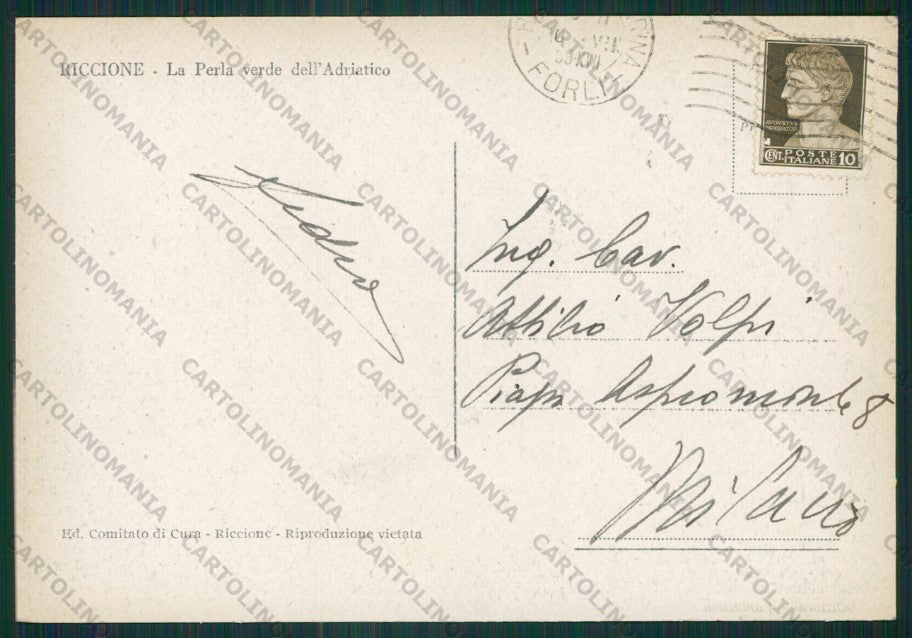 RICCIONE - La Perla verde dell'Adriatico
FORLI
AVGVSTVS
IMPERATOR
CENT. POSTE ITALIANE 10
Ing. Cav.
Attilio Volpi
Piazza Aspromonte 8
Milano
Ed. Comitato di Cura - Riccione - Riproduzione vietata
CARTOLINOMANIA